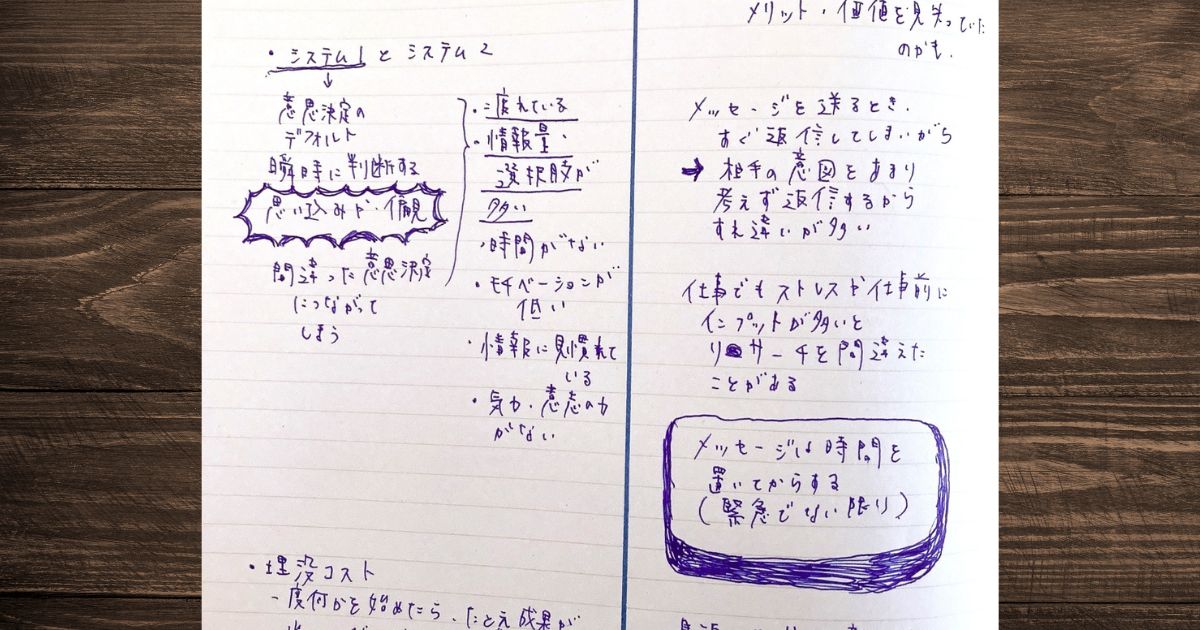 ・システム1とシステム2
↓
意思決定の
デフォルト
瞬時に判断する
思い込みや・偏観
間違った意思決定
につながって
しまう
・疲れている
・情報量・
選択肢が
多い
・時間がない
・モチベーションが
低い
・情報に見慣れて
いる
・気力・意志の力
がない
・埋没コスト
一度何かを始めたら、たとえ成果が
メリット・価値を見失っていた
のかも.
メッセージを送るとき.
すぐ返信してしまいがち
→ 相手の意図をあまり
考えず返信するから
すれ違いが多い
仕事でもストレスや仕事前に
インプットが多いと
リサーチを間違えた
ことがある
メッセージは時間を
置いてからする
(緊急でない限り)